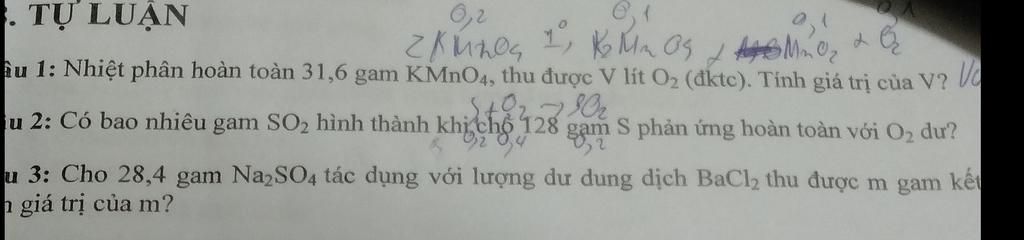 . TỰ LUẬN
0,2 0,1 0,1 0,1
2KMnO4 t°, K2MnO4 + MnO2 + O2
âu 1: Nhiệt phân hoàn toàn 31,6 gam KMnO4, thu được V lít O2 (đktc). Tính giá trị của V?
S + O2 → SO2
u 2: Có bao nhiêu gam SO2 hình thành khi cho 128 gam S phản ứng hoàn toàn với O2 dư?
0,2 0,4 0,2
u 3: Cho 28,4 gam Na2SO4 tác dụng với lượng dư dung dịch BaCl2 thu được m gam kết
n giá trị của m?